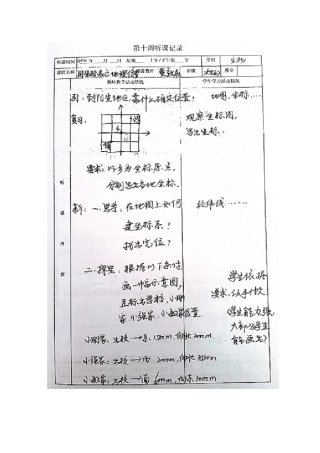 第十周听课记录
听课时间 年 月 日 上午/下午第 节 学科
课题名称 用坐标表示地理位置 授课教师 班级 教室
教师教学活动情况 学生学习活动情况
引：到陌生地点，靠什么确定位置？ 地图，坐标……
复习： 观察坐标图，
写出坐标。
要求：以 为坐标原点，
分别写出各地坐标。
听课内容
新：一.思考：在地图上如何 经纬线……
建坐标系？
找出定位？
二.探究：根据以下条件 学生依据
画一幅示意图， 要求，动手作
且标出学校，小刚
家，小强家，小敏家位置 （学生能力强，
大部分学生
能画出）
小刚家：出校→东1500m，向北2000m
小强家：出校→西2000m，
小敏家：出校→南